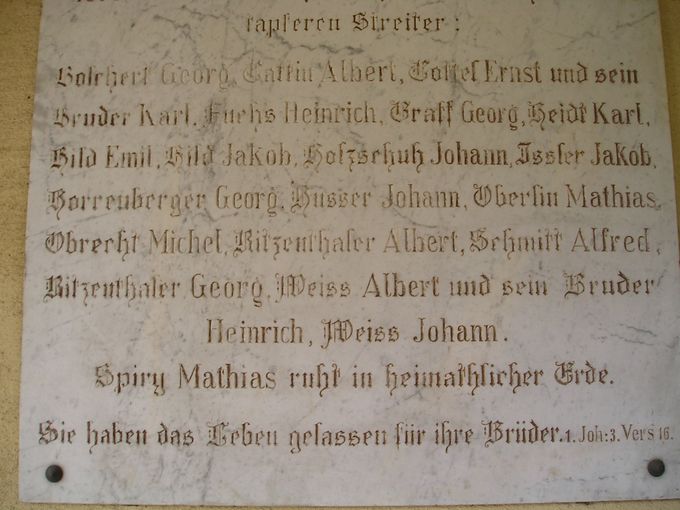 tapferen Streiter:
Bolchert Georg, Cattin Albert, Cottel Ernst und sein
Bruder Karl, Fuchs Heinrich, Graff Georg, Heidt Karl,
Hild Emil, Hild Jakob, Holzschuh Johann, Issler Jakob,
Horrenberger Georg, Husser Johann, Oberlin Mathias,
Obrecht Michel, Ritzenthaler Albert, Schmitt Alfred,
Ritzenthaler Georg, Weiss Albert und sein Bruder
Heinrich, Weiss Johann.
Spiry Mathias ruht in heimathlicher Erde.
Sie haben das Leben gelassen für ihre Brüder. 1. Joh: 3. Vers 16.